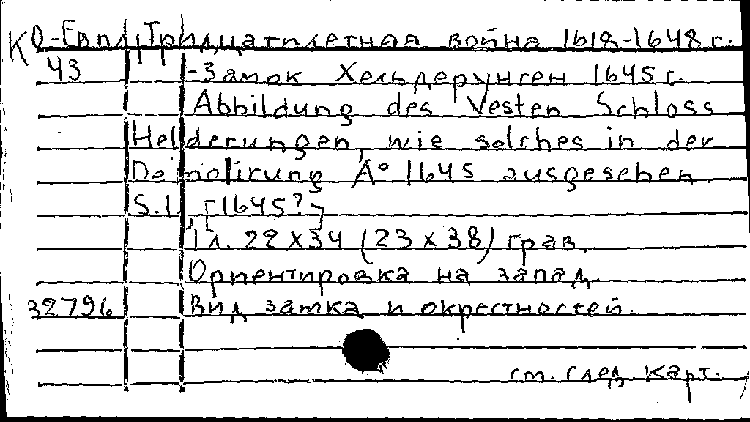 К О-Евп, Тридцатилетная война 1618-1648 г.
43 -Замок Хельдерунген 1645 г.
Abbildung des Vesten Schloss
Helderungen, wie solches in der
Demolirung A° 1645 ausgesehen.
S.l., [1645?]
1 л. 22 x 34 (23 x 38) грав.
Ориентировка на запад.
32796 Вид замка и окрестностей.
см. след. карт.